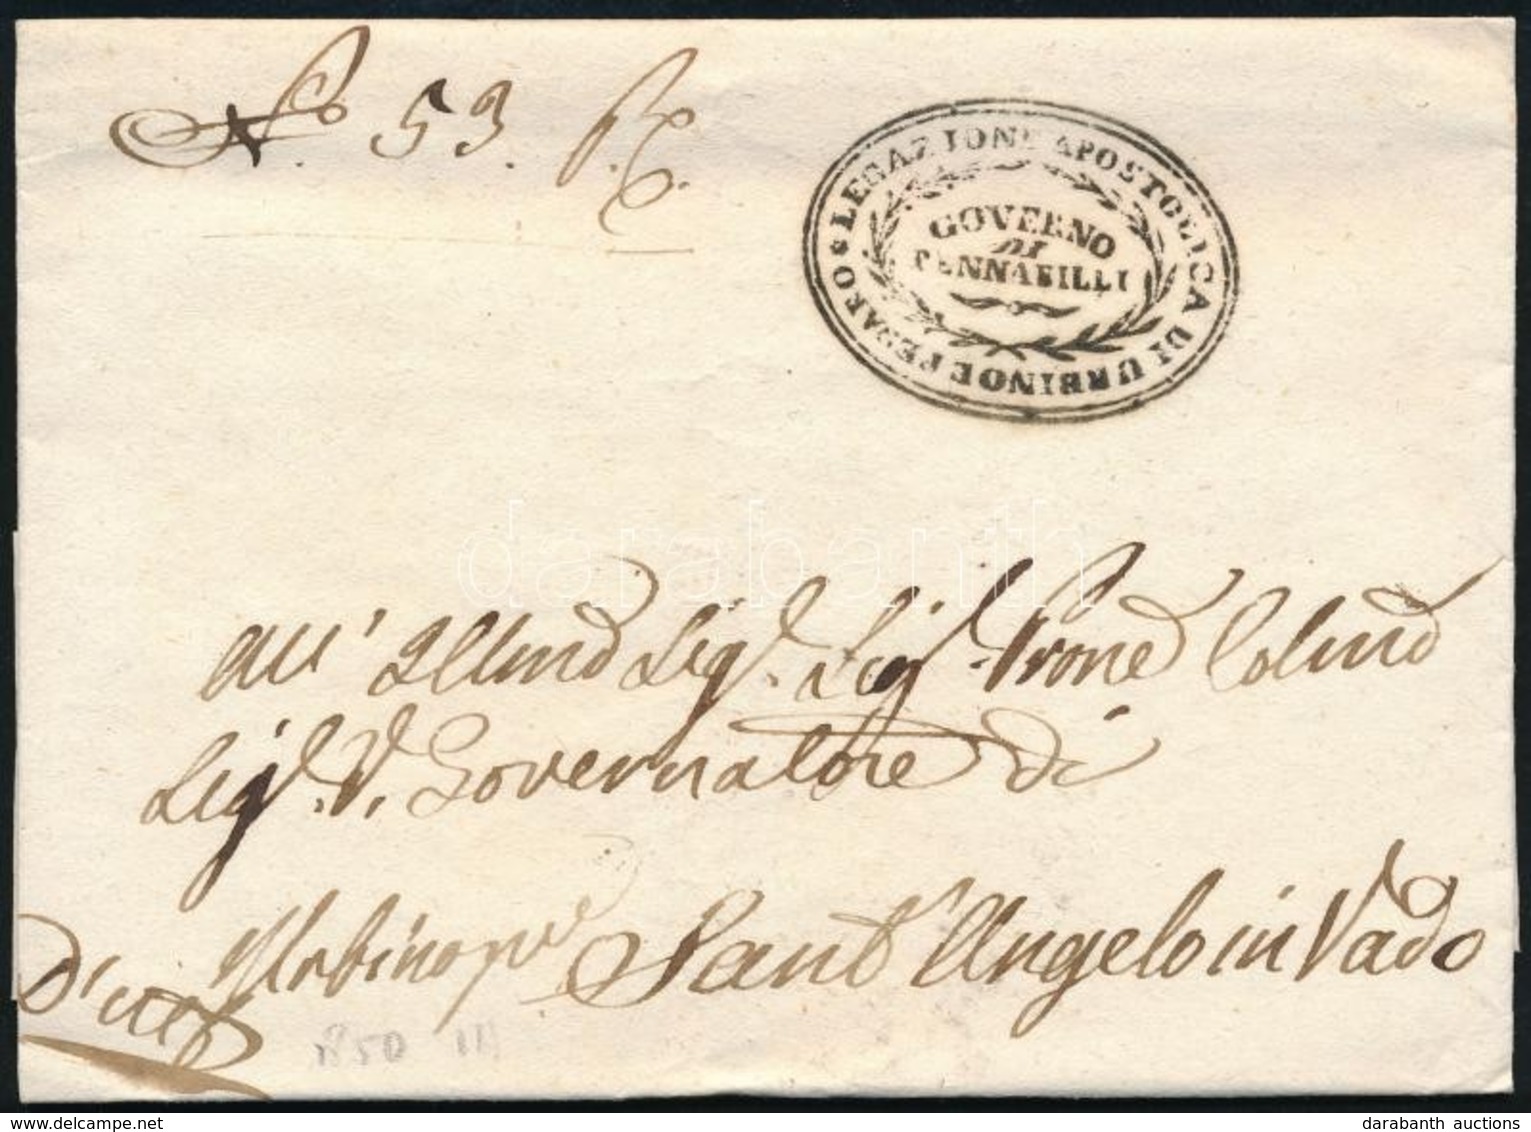 N.o 53. P.S.
LEGAZIONE APOSTOLICA DI URBINO E PESARO
GOVERNO
DI
PENNABILLI
darabanth
All' Illmo Sig.r Sig.r Prone Colmo
Sig.r V. Governatore di
Urbino per Sant'Angelo in Vado
850 III
www.delcampe.net
darabanth auctions